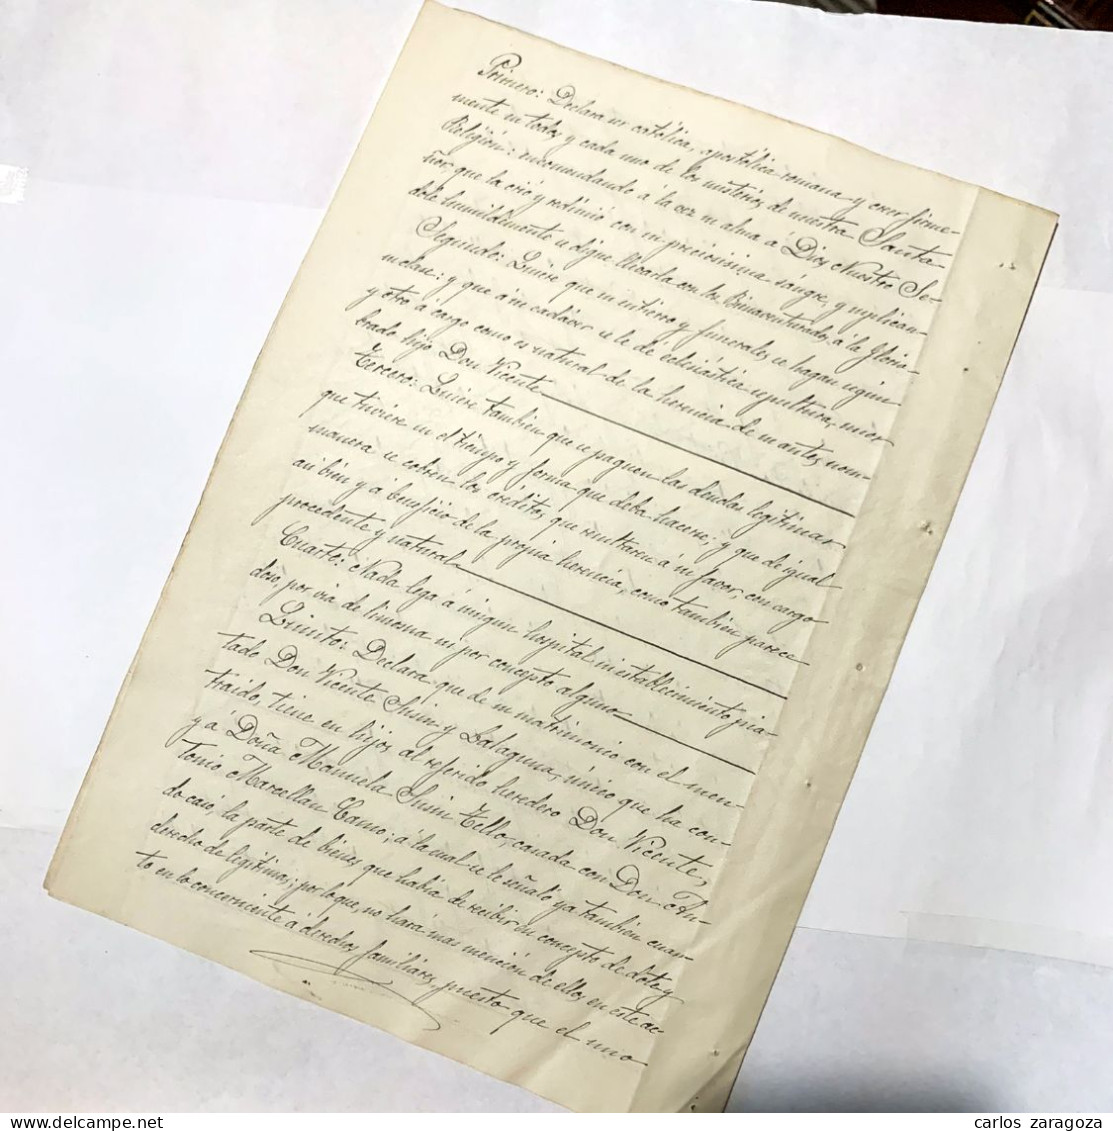 Primero: Declara ser católica, apostólica romana y creer firme-
mente en todos y cada uno de los misterios de nuestra Santa
Religión: encomendando á la vez su alma á Dios Nuestro Se-
ñor, que la crió y redimió con su preciosísima sángre, y suplican-
dole humildemente se digne llevarla con los Bienaventurados á la Gloria.
Segundo: Quiere que su entierro y funerales se hagan según
su clase: y que a su cadáver se le dé eclesiástica sepultura, uno
y otro á cargo como es natural de la herencia de su antes nom-
brado hijo Don Vicente
Tercero: Quiere también que se paguen las deudas legítimas
que tuviere en el tiempo y forma que deba hacerse; y que de igual
manera se cobren los créditos que resultaren á su favor, con cargo
así bien y á beneficio de la propia herencia, como también parece
procedente y natural
Cuarto: Nada lega á ningún hospital ni establecimiento pia-
doso, por via de limosna ni por concepto alguno
Quinto: Declara que de su matrimonio con el men-
tado Don Vicente Susin y Lalaguna, único que ha con-
traido, tiene en hijos al referido heredero Don Vicente,
y á Doña Manuela Susin Tello, casada con Don An-
tonio Marcellan Camo; á la cual se le señaló ya también cuan-
do casó, la parte de bienes que había de recibir en concepto de dote y
derecho de legítima; por lo que, no hará mas mención de ellos en este ac-
to en lo concerniente á derechos familiares, puesto que el uno
carlos zaragoza